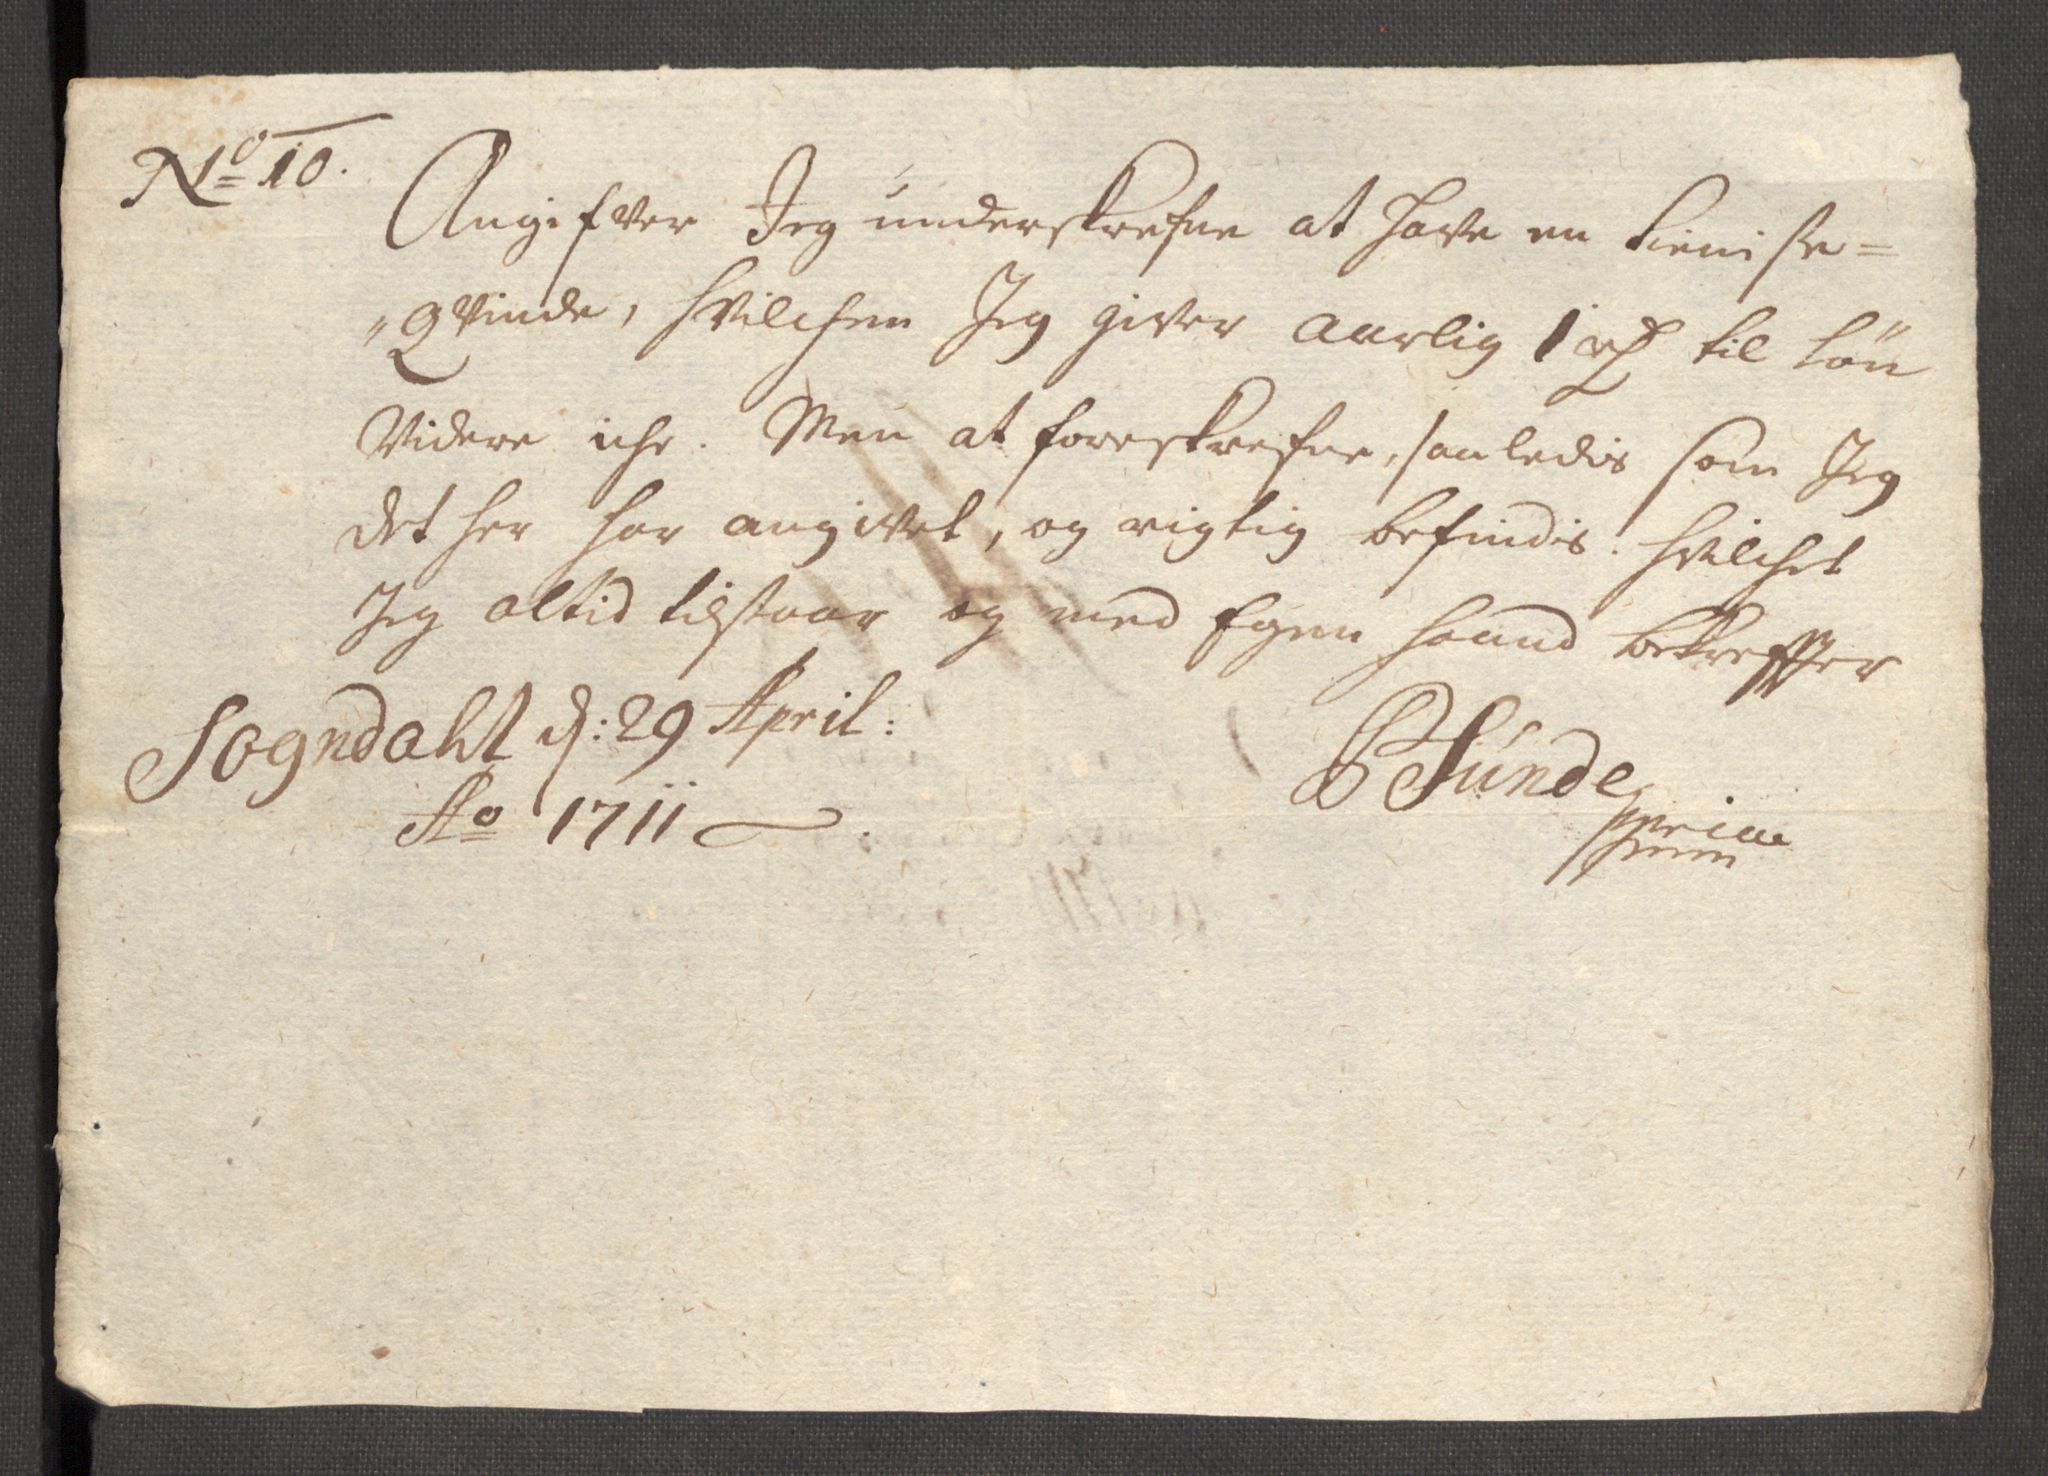 No 10.
Angifver Jeg underskrefne at have en tieniste=
"Qvinde, hvilchen Jeg giver aarlig 1 rd til løn
Videre iche. Men at foreskrefne, saaledis som Jeg
det her har angivet, og rigtig befindis. hvilchet
Jeg altid tilstaar og med Egen haand bekreffter
Sogndahl d: 29 April:
Ao 1711
B Sunde